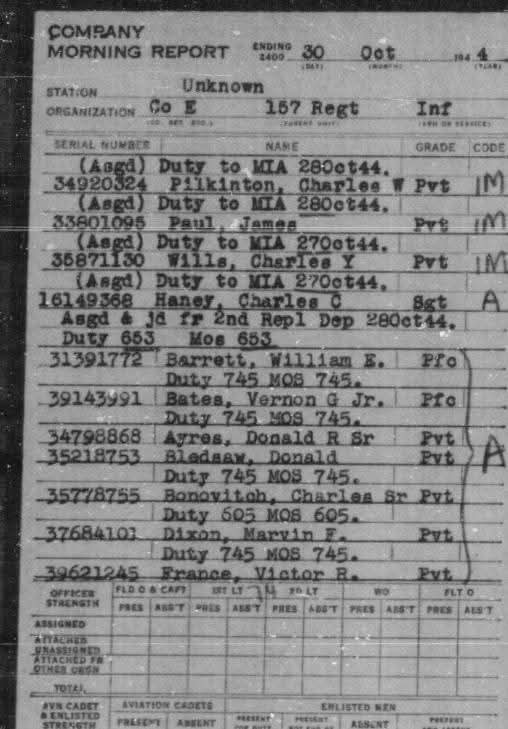 COMPANY
MORNING REPORT ENDING 2400 30 Oct 194 4
(DAY) (MONTH) (YEAR)
STATION Unknown
ORGANIZATION Co E 157 Regt Inf
(CO, DET, SQD.) (PARENT UNIT) (ARM OR SERVICE)
SERIAL NUMBER NAME GRADE CODE
(Asgd) Duty to MIA 28Oct44.
34920324 Pilkinton, Charles W Pvt IM
(Asgd) Duty to MIA 28Oct44.
33801095 Paul, James Pvt IM
(Asgd) Duty to MIA 27Oct44.
35871130 Wills, Charles Y Pvt IM
(Asgd) Duty to MIA 27Oct44.
16149368 Haney, Charles C Sgt A
Asgd & jd fr 2nd Repl Dep 28Oct44.
Duty 653 Mos 653
31391772 Barrett, William E. Pfc
Duty 745 MOS 745.
39143991 Bates, Vernon G Jr. Pfc
Duty 745 MOS 745.
34798868 Ayres, Donald R Sr Pvt
35218753 Bledsaw, Donald Pvt A
Duty 745 MOS 745.
35778755 Bonovitch, Charles Sr Pvt
Duty 605 MOS 605.
37684101 Dixon, Marvin F. Pvt
Duty 745 MOS 745.
39621245 France, Victor R. Pvt
OFFICER STRENGTH FLD O & CAPT 1ST LT 2D LT WO FLT O
PRES ABS'T PRES ABS'T PRES ABS'T PRES ABS'T PRES ABS'T
ASSIGNED
ATTACHED
UNASSIGNED
ATTACHED FR
OTHER ORGN
TOTAL
AVN CADET & ENLISTED STRENGTH AVIATION CADETS ENLISTED MEN
PRESENT ABSENT PRESENT FOR DUTY PRESENT ABSENT PRESENT